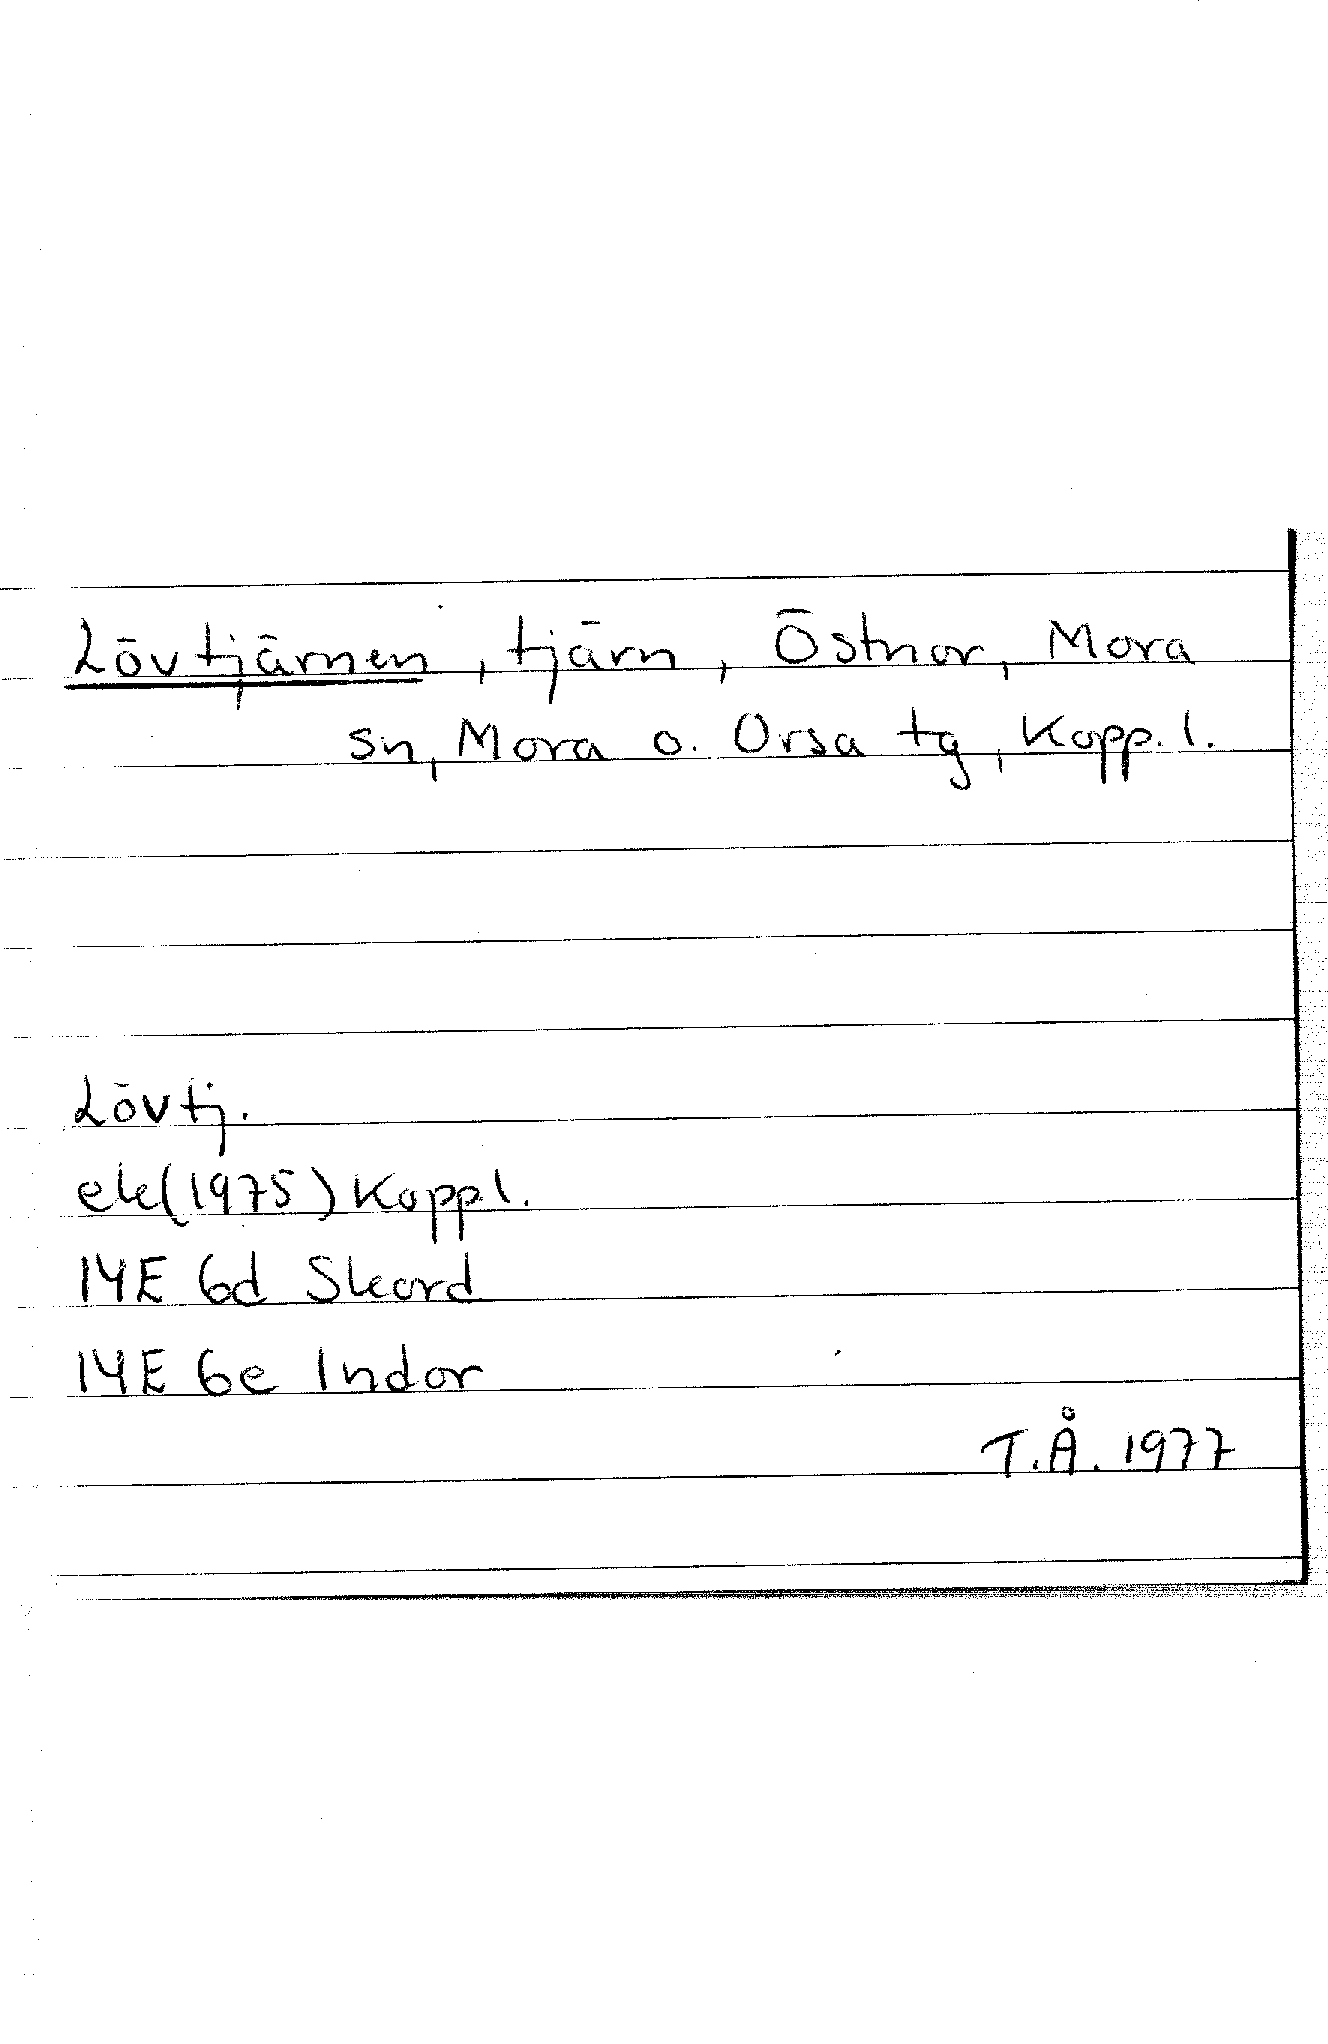 Lövtjärnen, tjärn, Östnor, Mora
sn, Mora o. Orsa tg, Kopp. l.
Lövtj.
ek(1975) Koppl.
14E 6d Skord
14E 6e Indor
T.Å. 1977